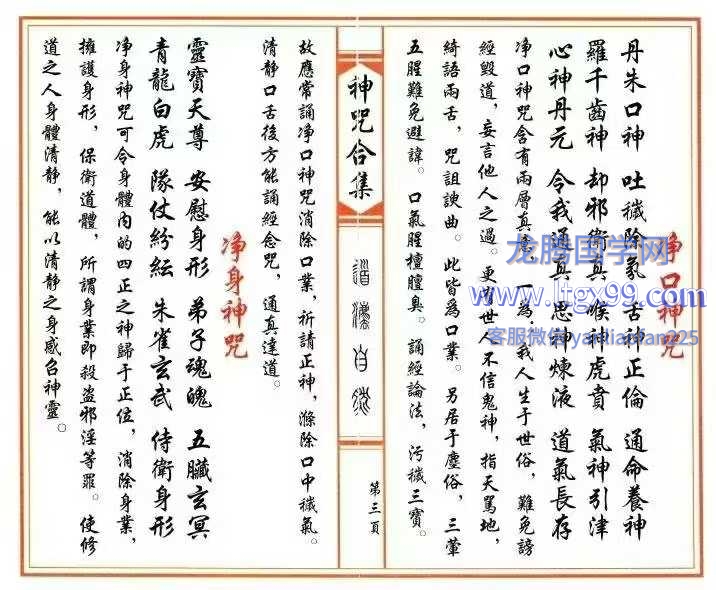 净口神咒
丹朱口神 吐穢除氛 舌神正倫 通命養神
羅千齒神 却邪衛真 喉神虎賁 氣神引津
心神丹元 令我通真 思神煉液 道氣長存
净口神咒含有兩層真意，一為我人生于世俗，難免謗
經毀道，妄言他人之過。更有世人不信鬼神，指天罵地，
綺語兩舌，咒詛諛曲。此皆爲口業。另居于塵俗，三葷
五腥難免避諱。口氣腥檀膻臭。誦經論法，污穢三寶。
神咒合集
道濟自然
第三頁
故應常誦净口神咒消除口業，祈請正神，滌除口中穢氣。
清静口舌後方能誦經念咒，通真達道。
净身神咒
靈寶天尊 安慰身形 弟子魂魄 五臟玄冥
青龍白虎 隊仗紛紜 朱雀玄武 侍衛身形
净身神咒可令身體内的四正之神歸于正位，消除身業，
擁護身形，保衛道體，所謂身業即殺盗邪淫等罪。使修
道之人身體清静，能以清静之身感合神靈。
龙腾国学网
www.ltgx99.com